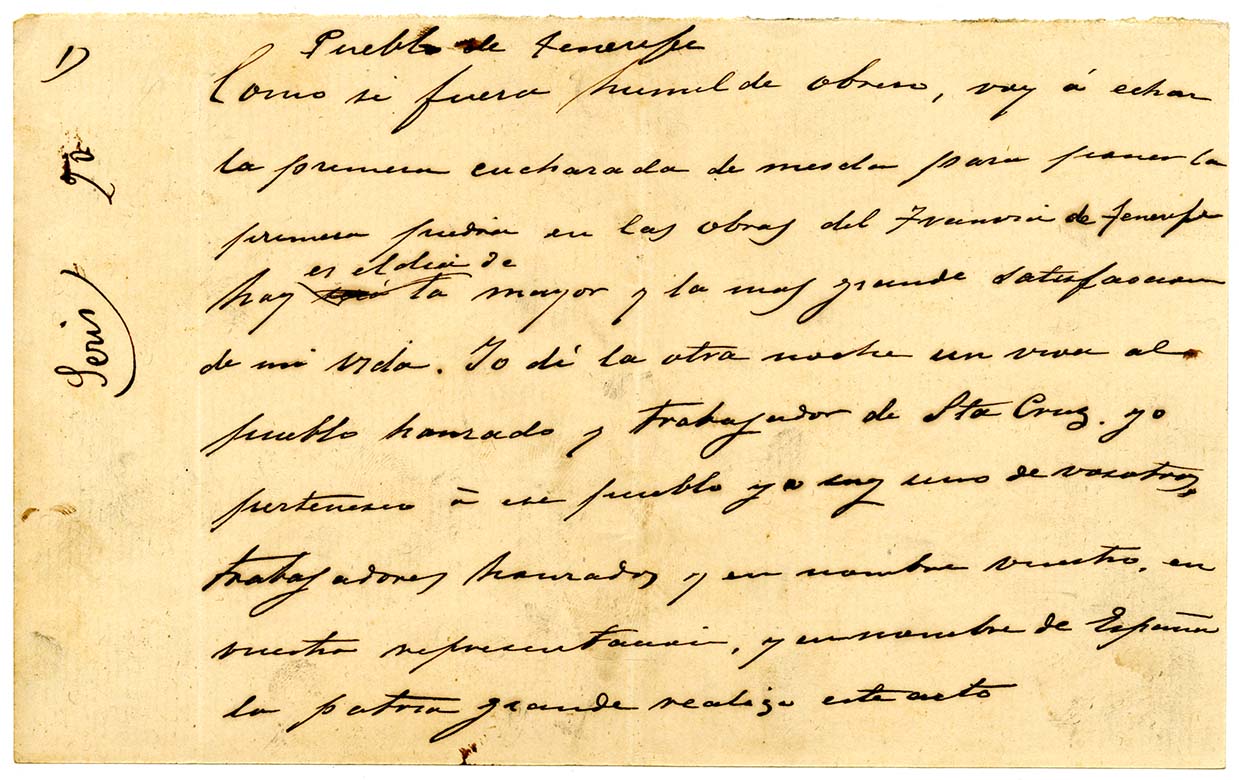 1)
Pueblo de Tenerife
Como si fuera humilde obrero, voy á echar
la primera cucharada de mescla para poner la
primera piedra en las obras del Tranvia de Tenerife
es el dia de
hoy la mayor y la mas grande satisfaccion
de mi vida. Yo dí la otra noche un viva al
pueblo honrado y trabajador de Sta Cruz. yo
pertenesco á ese pueblo yo soy uno de vosotros,
trabajadores honrados y en nombre vuestro, en
vuestra representacion, y en nombre de España
la patria grande realizo este acto
Seris